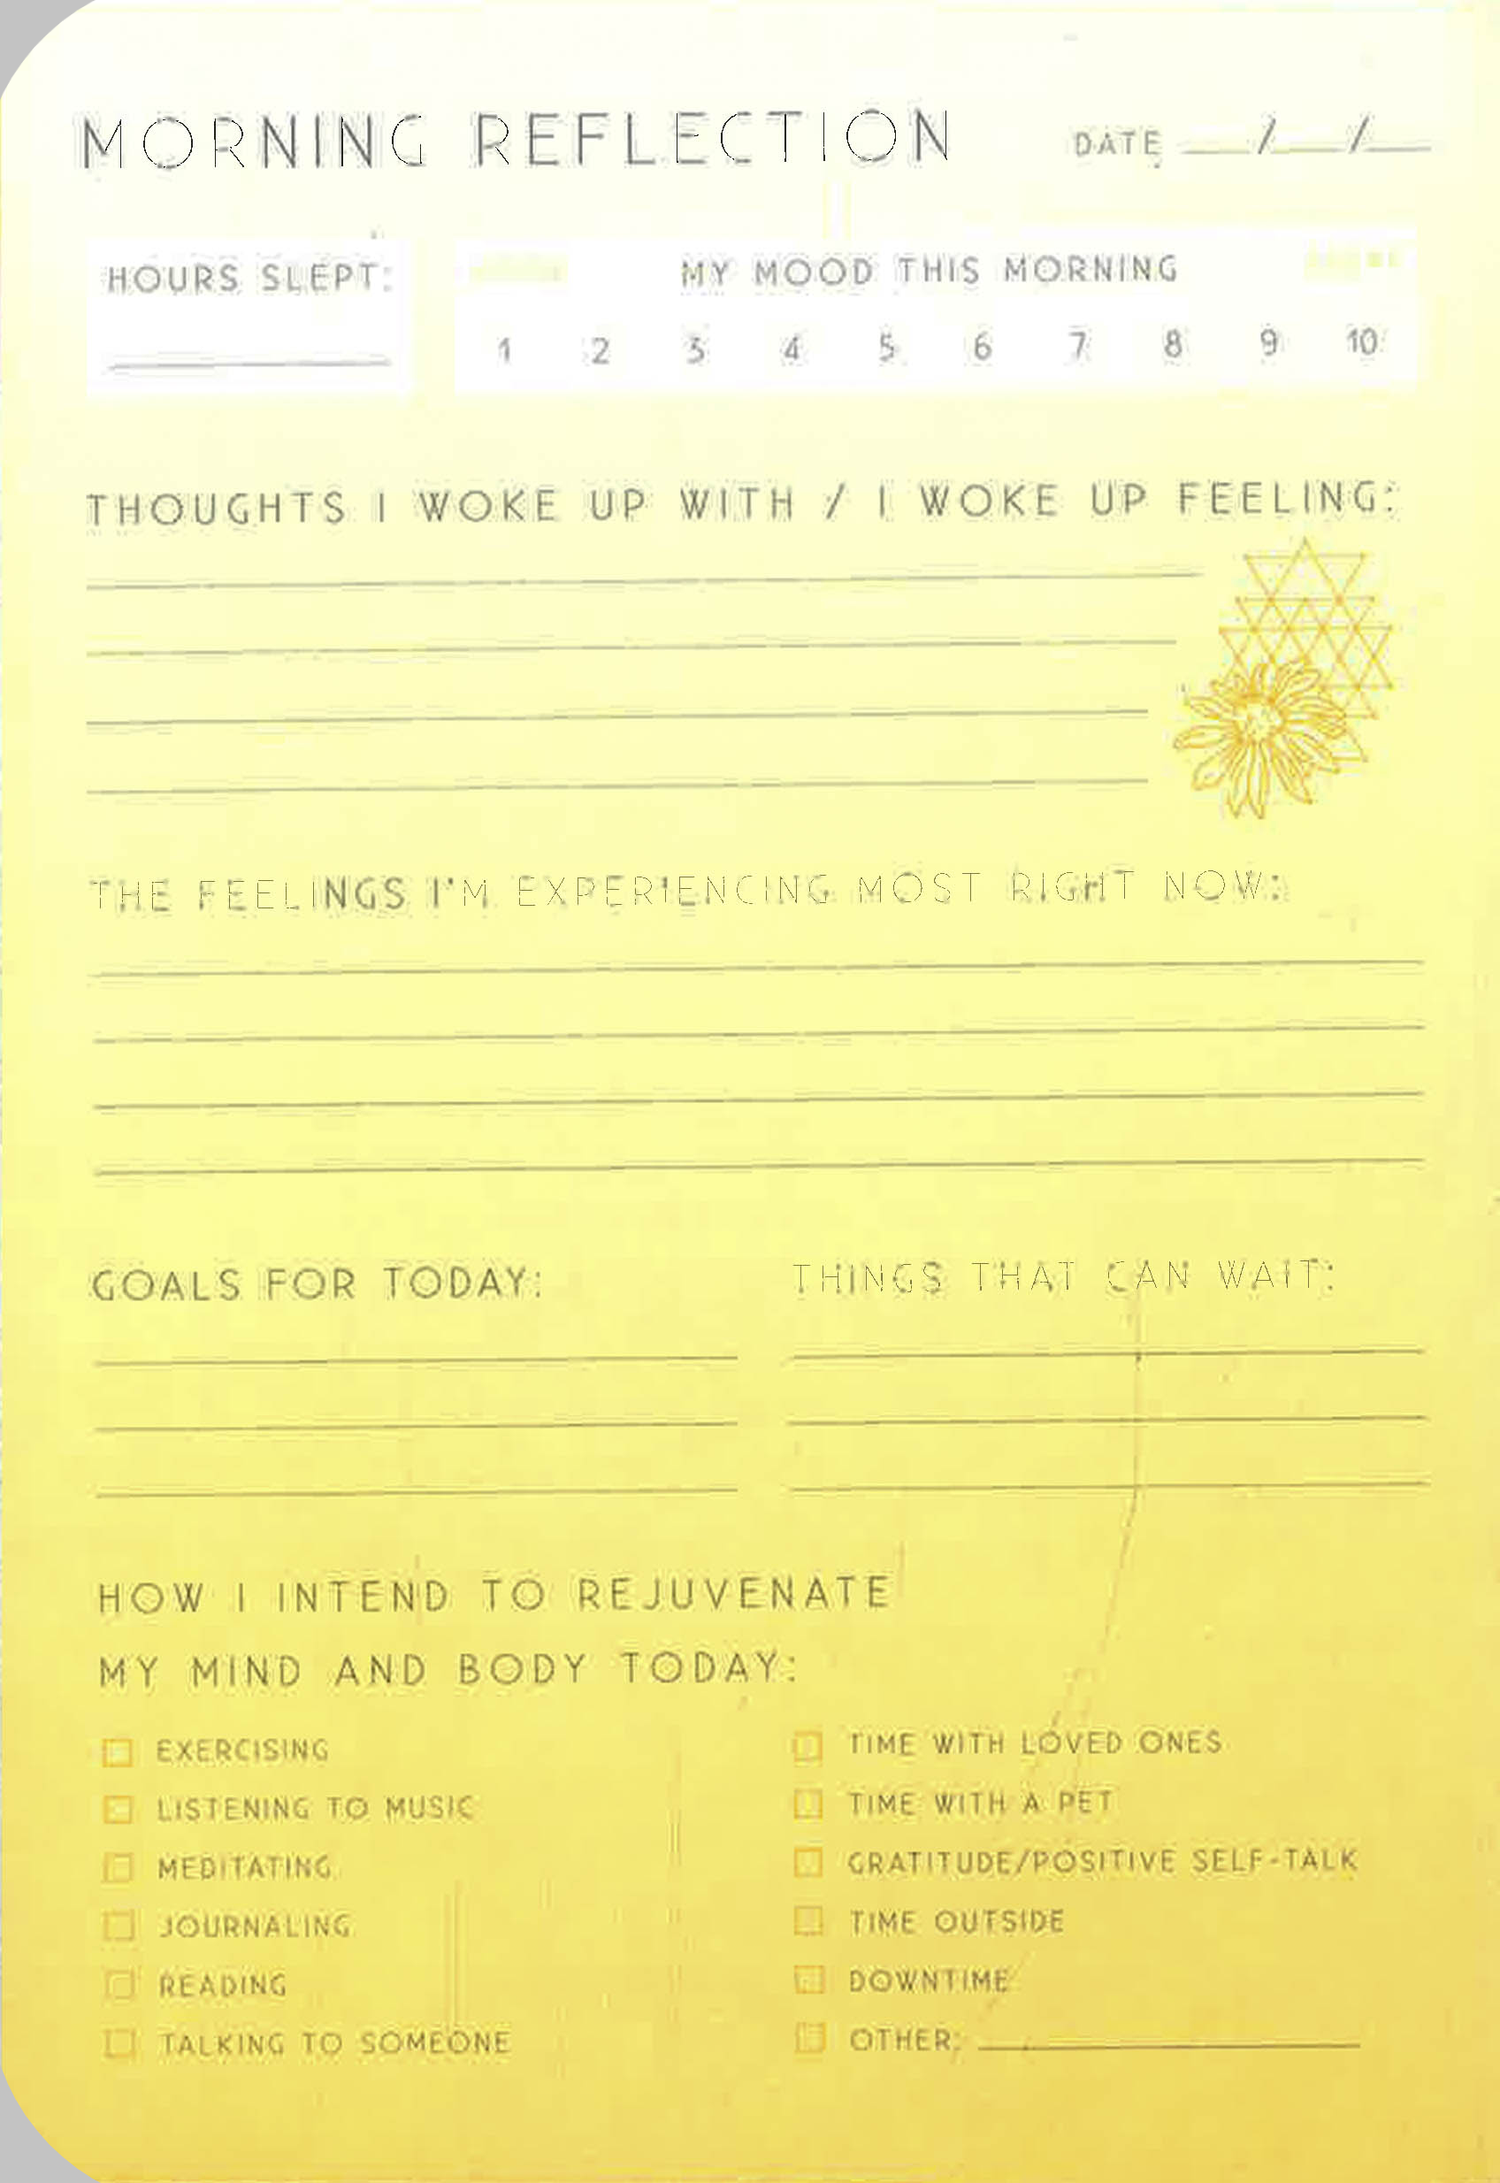 MORNING REFLECTION DATE __/__/__
HOURS SLEPT:
MY MOOD THIS MORNING
1 2 3 4 5 6 7 8 9 10
THOUGHTS I WOKE UP WITH / I WOKE UP FEELING:
THE FEELINGS I'M EXPERIENCING MOST RIGHT NOW:
GOALS FOR TODAY:
THINGS THAT CAN WAIT:
HOW I INTEND TO REJUVENATE
MY MIND AND BODY TODAY:
EXERCISING
LISTENING TO MUSIC
MEDITATING
JOURNALING
READING
TALKING TO SOMEONE
TIME WITH LOVED ONES
TIME WITH A PET
GRATITUDE/POSITIVE SELF-TALK
TIME OUTSIDE
DOWNTIME
OTHER: